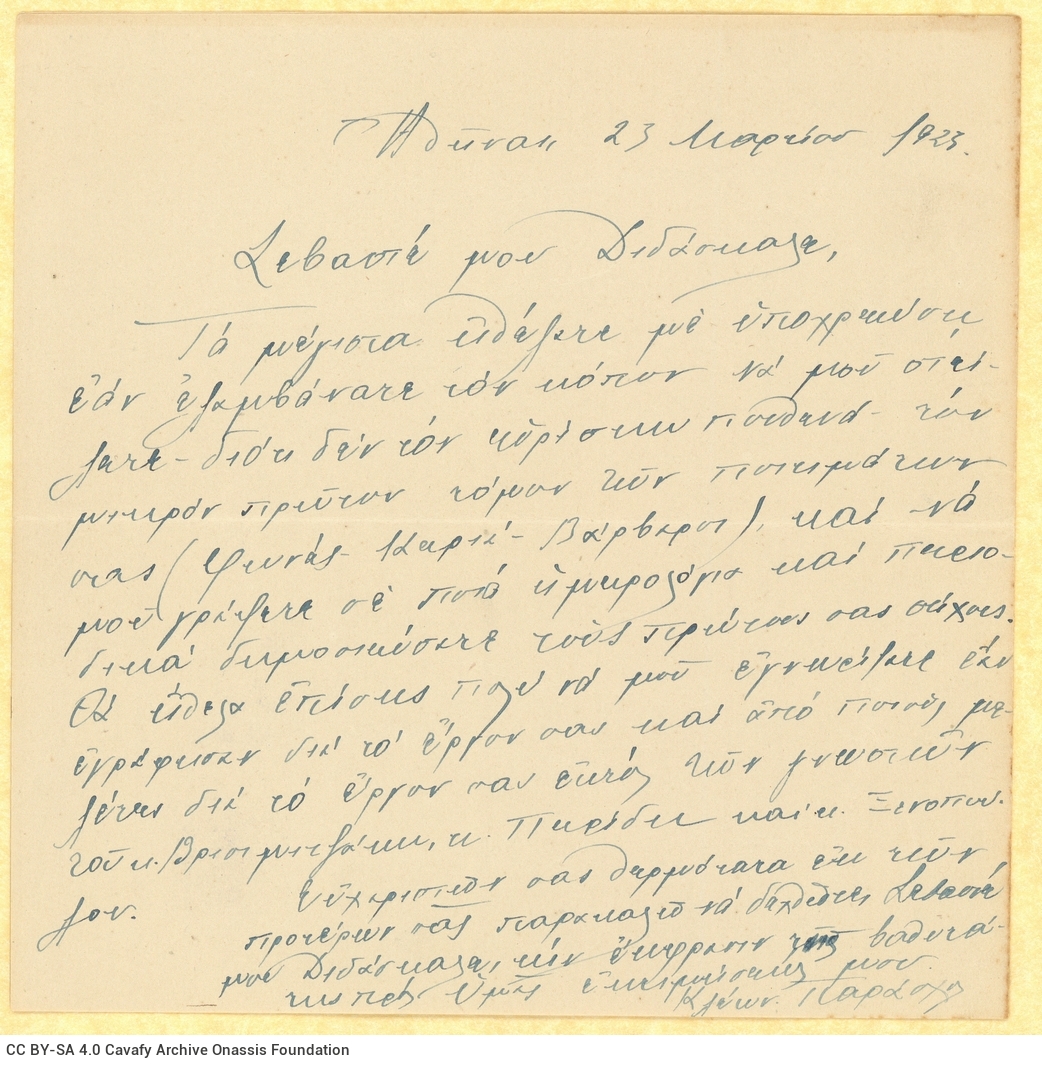 Ἀθῆναι, 23 Μαρτίου 1923.
Σεβαστέ μου Διδάσκαλε,
Τά μέγιστα θά μὲ ὑποχρεώσητε
ἐάν ἐλαμβάνατε τόν κόπον νά μοῦ στεί-
λετε - διότι δέν τόν εὑρίσκω πουθενά - τόν
μικρόν πρῶτον τόμον τῶν ποιημάτων
σας (Φωνές - Κεριά - Βάρβαροι), καί νά
μοῦ γράψετε σὲ ποιά ἡμερολόγια καί περιο-
δικά δημοσιεύσατε τοὺς πρώτους σας στίχους.
Θά ἤθελα ἐπίσης πολύ νά μοῦ ἐγνωρίζατε ἐάν
ἐγράφησαν διά τό ἔργον σας καί ἀπό ποιούς με-
λέται διά τό ἔργον σας ἐκτός τῶν γνωστῶν
τοῦ κ. Βρισιμιτζάκη, κ. Παρίδη καί κ. Ξενοπού-
λου.
Εὐχαριστῶν σας θερμότατα ἐκ τῶν
προτέρων σᾶς παρακαλῶ νά δεχθῆτε, Σεβαστέ
μου Διδάσκαλε, τήν ἔκφρασιν τῆς βαθυτά-
της πρός ὑμᾶς ἐκτιμήσεώς μου.
Κλέων. Παράσχος
CC BY-SA 4.0 Cavafy Archive Onassis Foundation